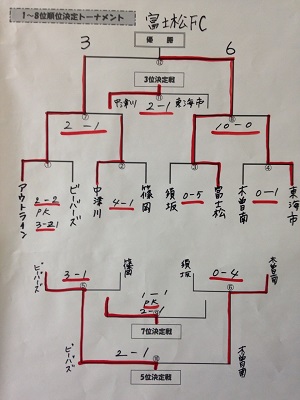 1～8位順位決定トーナメント
富士松FC
優勝
3
6
⑪
3位決定戦
中津川
2-1
東海市
⑦
2-1
⑧
10-0
①
②
③
④
アウトライン
2-2
PK
3-2
ビーバーズ
中津川
4-1
篠岡
須坂
0-5
富士松
木曽南
0-1
東海市
ビーバーズ
3-1
篠岡
須坂
0-4
木曽南
⑤
⑥
1-1
PK
2-
7位決定戦
ビーバーズ
2-1
木曽南
5位決定戦